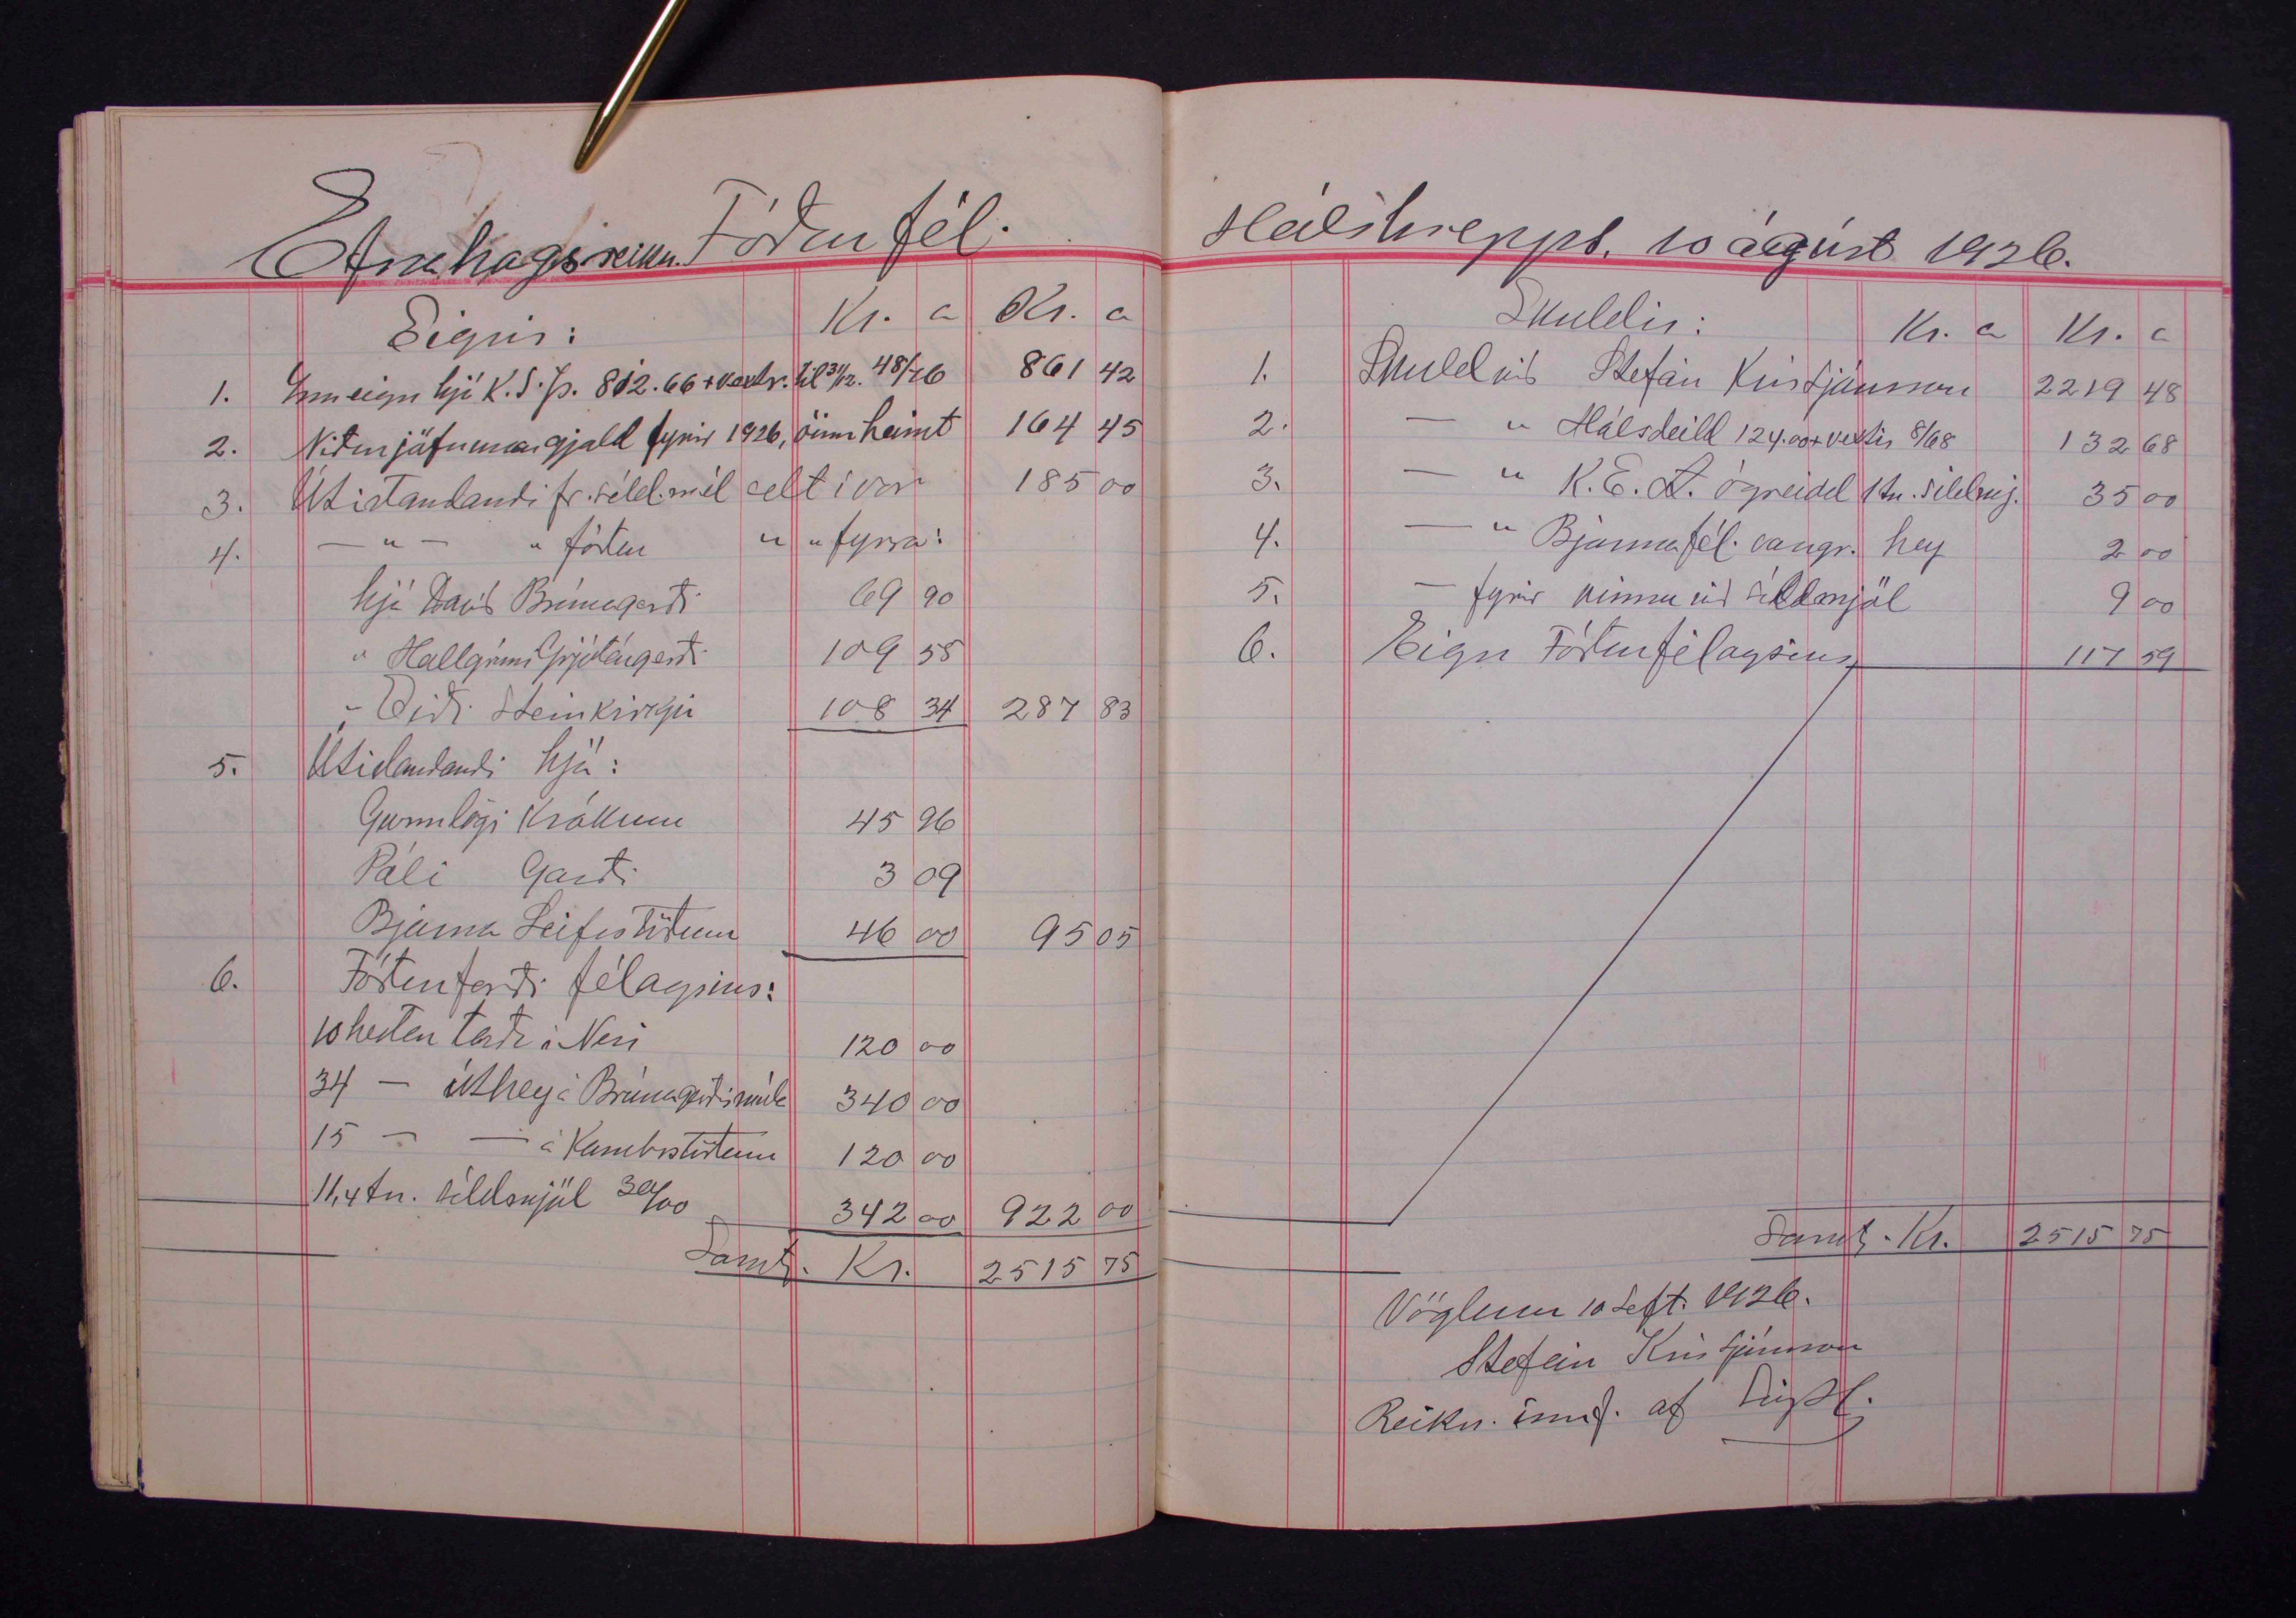 Efnahagsreikn. Fóðurfél. Hálshrepps. 10 ágúst 1926.
Eignir: Kr. a Kr. a
1. Inneign hjá K.S.Þ. 812.66 + vextir til 31/12. 48/76 861 42
2. Niðurjöfnunargjald fyrir 1926, óinnheimt 164 45
3. Útistandandi fr. síld.mél selt í vor 185 00
4. — " — " fóður " " fyrra:
hjá Davíð Brúnagerði 69 90
" Hallgrími Grjótárgerði 109 55
" Eiði Steinkirkju 108 34 287 83
5. Útistandandi hjá:
Gunnlögi Krókum 45 96
Páli Garði 3 09
Bjarna Leifsstöðum 46 00 95 05
6. Fóðurforði félagsins:
10 hesten taða á Nesi 120 00
34 — úthey á Brúnagerðismúla 340 00
15 — — á Kambsstöðum 120 00
11,4 tn. síldmjöl 30/00 342 00 922 00
Samt. Kr. 2515 75
Skuldir: Kr. a Kr. a
1. Skuld við Stefán Kristjánsson 2219 48
2. — " Hálsdeild 124.00 + vextir 8/68 132 68
3. — " K.E.A. ógreidd 1 tn. síldmj. 35 00
4. — " Bjarnafél. vangr. hey 2 00
5. — fyrir vinnu við síldmjöl 9 00
6. Eign Fóðurfélagsins 117 59
Samt. Kr. 2515 75
Vöglum 10 Sept. 1926.
Stefán Kristjánsson
Reikn. innf. af